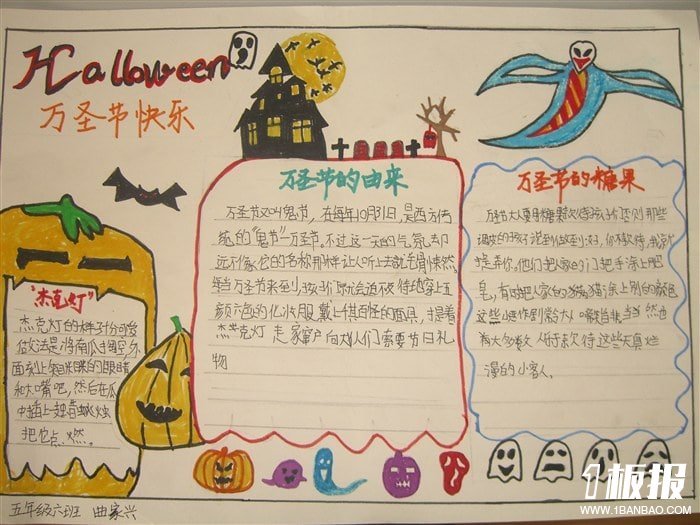 Halloween
万圣节快乐
"杰克灯"
杰克灯的样子分可爱
做法是将南瓜掏空外
面刻上
和大嘴吧,然后在瓜
中插上一支蜡烛
把它点燃。
万圣节的由来
万圣节又叫鬼节,在每年10月31日,是西方传
统的"鬼节"—万圣节。不过这一天的气氛却
远不像它的名称那样让人听上去就毛骨悚然。
每当万圣节来到,孩子们都会迫不及待地穿上五
颜六色的化妆服,戴上千奇百怪的面具,提着
杰克灯 走家窜户向大人们索要节日礼
物
万圣节的糖果
万圣节大人要用糖果款待孩子们否则那些
调皮的孩子说到做到
他们把人家的门把手涂上肥
皂,有时把人家的猫涂上别的颜色
这些小恶作剧常令大人啼笑皆非。当然也
有大多数人
漫的小客人。
五年级六班 曲家兴
1板报
WWW.1BANBAO.COM